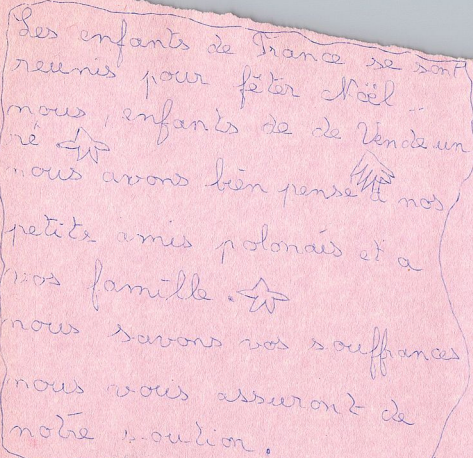 Les enfants de France se sont
reunis pour fêter Noël..
nous, enfants de de Vendeun
né
nous avons bien pense à nos
petits amis polonais et a
vos famille.
nous savons vos souffrances
nous vous assuront de
notre soution.